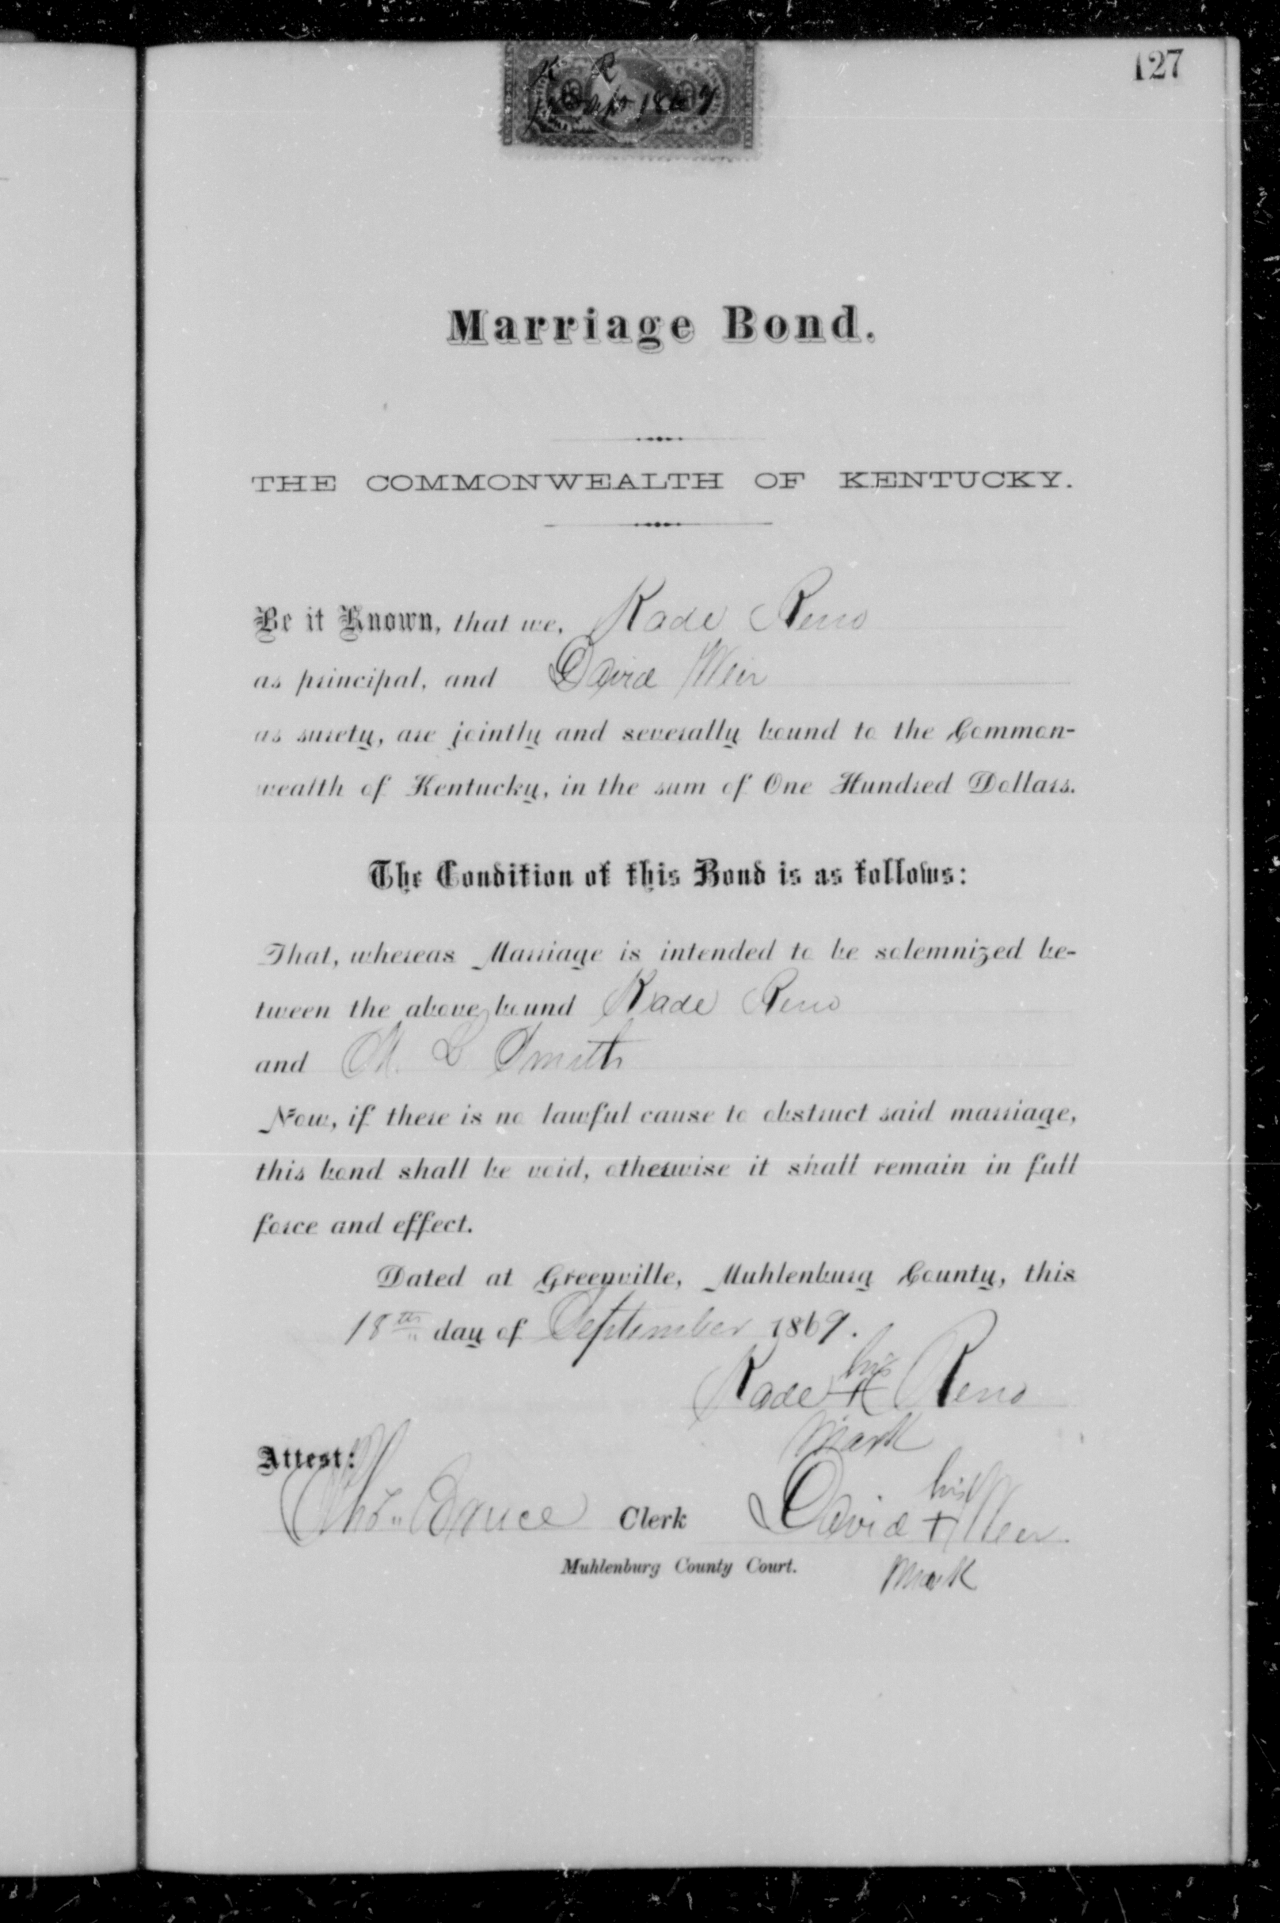 127
K R
18 Sept 1869
Marriage Bond.
THE COMMONWEALTH OF KENTUCKY.
Be it Known, that we, Kade Reno
as principal, and David Weir
as surety, are jointly and severally bound to the Common-
wealth of Kentucky, in the sum of One Hundred Dollars.
The Condition of this Bond is as follows:
That, whereas Marriage is intended to be solemnized be-
tween the above bound Kade Reno
and M. L. Smith
Now, if there is no lawful cause to obstruct said marriage,
this bond shall be void, otherwise it shall remain in full
force and effect.
Dated at Greenville, Muhlenburg County, this
18th day of September 1869.
his
Kade + Reno
mark
Attest:
his
Thos. Bruce Clerk David + Weir
Muhlenburg County Court. mark